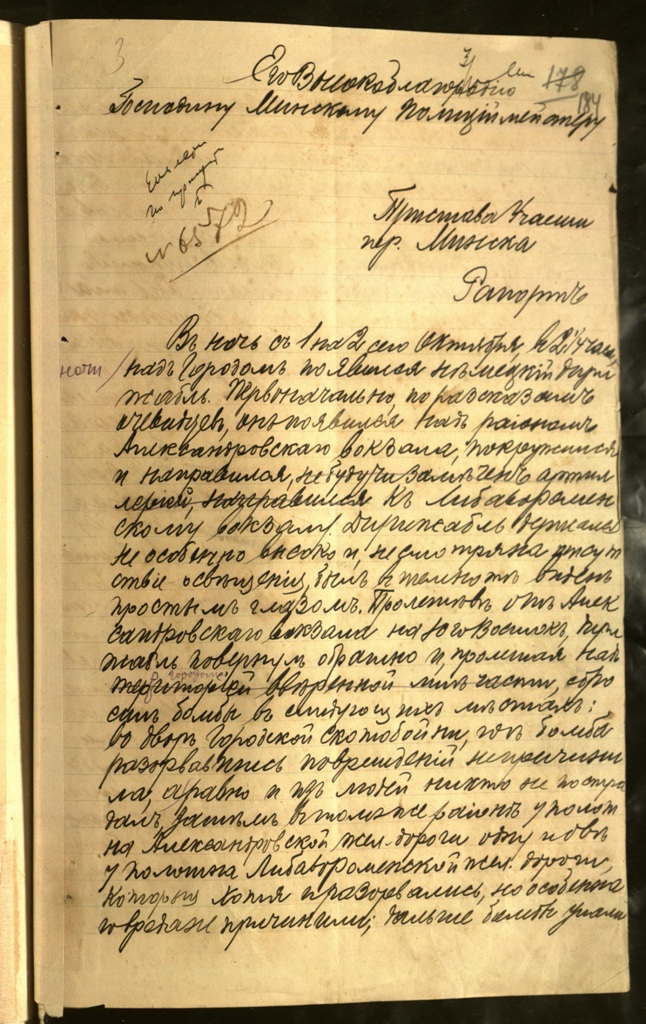 3
178
184
Его Высокоблагородию
Господину Минскому Полиціймейстеру
N 6572
Пристава Участка
гор. Минска
Рапортъ
Въ ночь съ 1 на 2 сего Октября, въ 2 1/4 часа,
ночи надъ Городомъ появился нѣмецкій дири
жабль. Первоначально по разсказамъ
очевидцевъ, онъ появился надъ раіономъ
Александровскаго вокзала, покружился
и направился, не будучи замѣченъ артил
леріей, направился къ Либаво-Ромен
скому вокзалу. Дирижабль держался
не особенно высоко и, несмотря на отсут
ствіе освѣщенія, былъ и въ темнотѣ виденъ
простымъ глазомъ. Пролетѣвъ отъ Алек
сандровскаго вокзала на Юго Востокъ, дири
жабль повернулъ обратно и, пролетая надъ
территоріей ввѣренной мнѣ части, сбро
силъ бомбы въ слѣдующихъ мѣстахъ:
во дворъ Городской скотобойни, гдѣ бомба
разорвавшись поврежденій не причини
ла, а равно и изъ людей никто не постра
далъ, затѣмъ въ томъ же раіонѣ у полот
на Александровской жел. дороги одну и двѣ
у полотна Либаво-Роменской жел. дороги,
которыя хотя и разорвались, но особеннаго
вреда не причинили; дальше бомбы упали